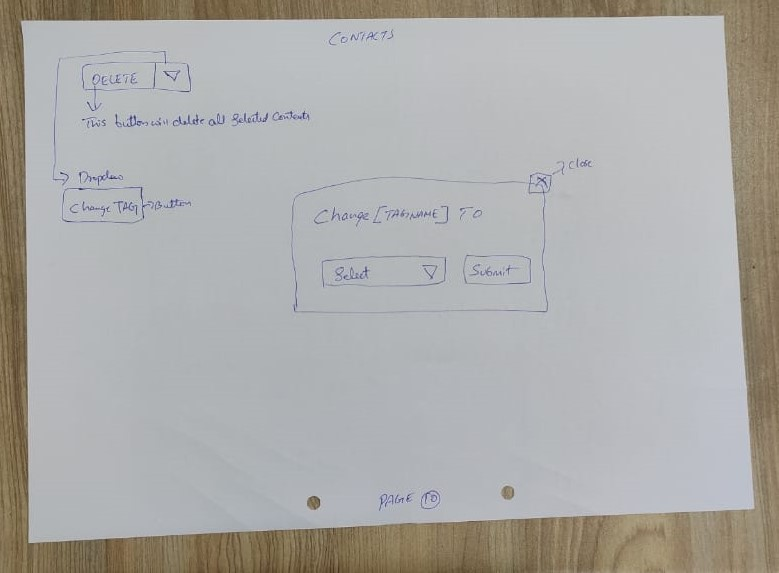 CONTACTS
DELETE
This button will delete all Selected Contacts
Dropdown
Change TAG
Button
Close
X
Change [TAGNAME] TO
Select
Submit
PAGE 10